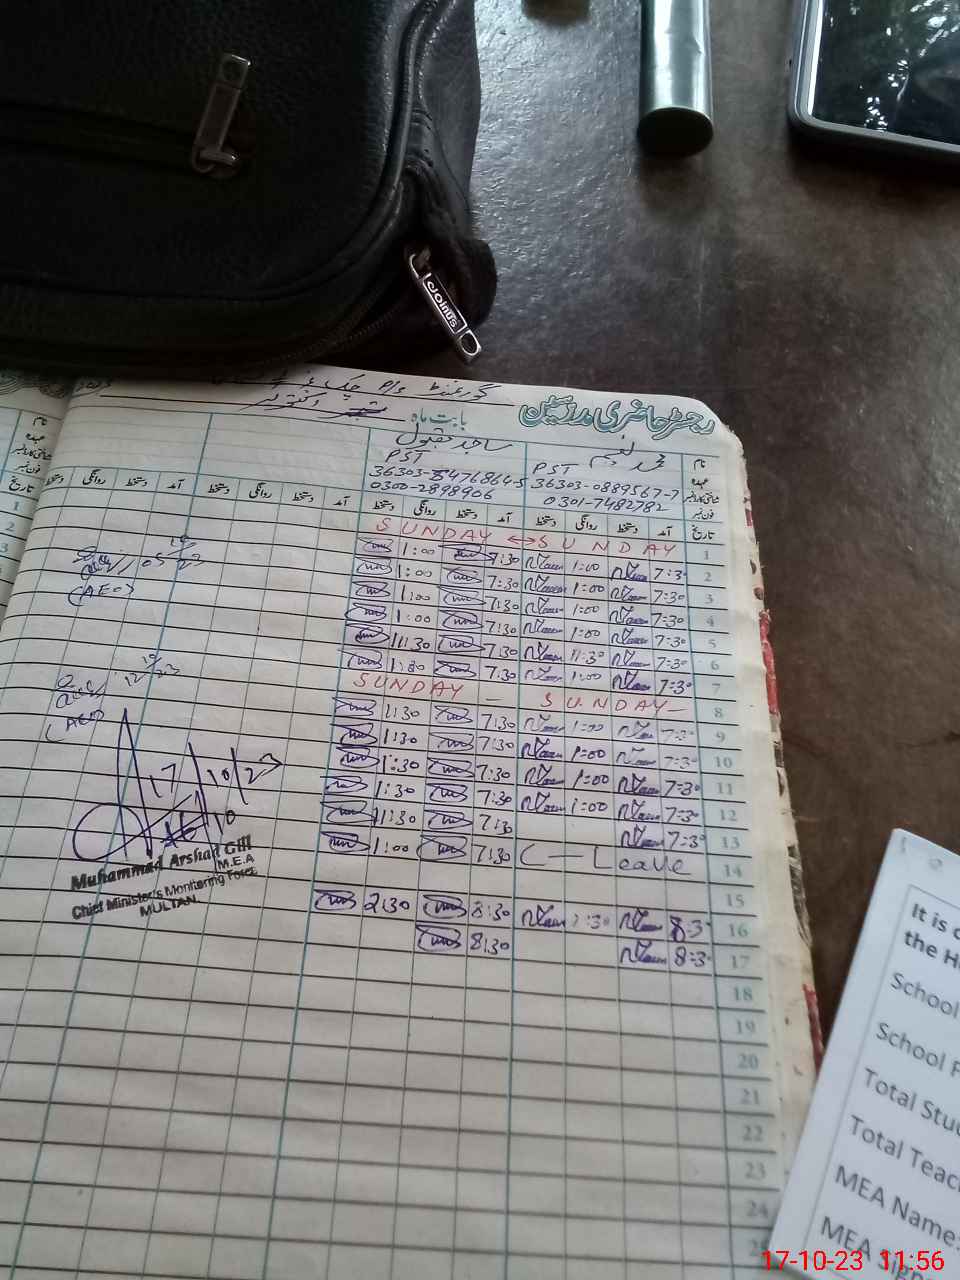 Joinus
رجسٹر حاضری مدرسین
بابت ماہ
گورنمنٹ P/S چک
نام
عہدہ
شناختی کارڈ نمبر
فون نمبر
محمد نعیم
PST
36303-0889567-7
0301-7482782
ساجد مقبول
PST
36303-8476864-5
0300-2898906
تاریخ آمد دستخط روانگی دستخط آمد دستخط روانگی دستخط آمد دستخط روانگی دستخط
1 SUNDAY ↔ SUNDAY
2 7:30 1:00 7:30 1:00
3 7:30 1:00 7:30 1:00
4 7:30 1:00 7:30 1:00
5 7:30 1:00 7:30 1:00
6 7:30 11:30 7:30 11:30
7 7:30 1:00 7:30 1:00
8 SUNDAY SUNDAY
9 7:30 1:00 7:30 1:30
10 7:30 1:00 7:30 1:30
11 7:30 1:00 7:30 1:30
12 7:30 1:00 7:30 1:30
13 7:30 7:30 11:30
14 Leave 7:30 1:00
15
16 8:30 2:30 8:30 2:30
17 8:30 8:30
18
19
20
21
22
23
24
25
(AEO)
(AEO)
17/10/23
Muhammad Arshad Gill
M.E.A
Chief Minister's Monitoring Force
MULTAN
It is
the H
School
School F
Total Stu
Total Teac
MEA Name:
MEA Sign
17-10-23 11:56